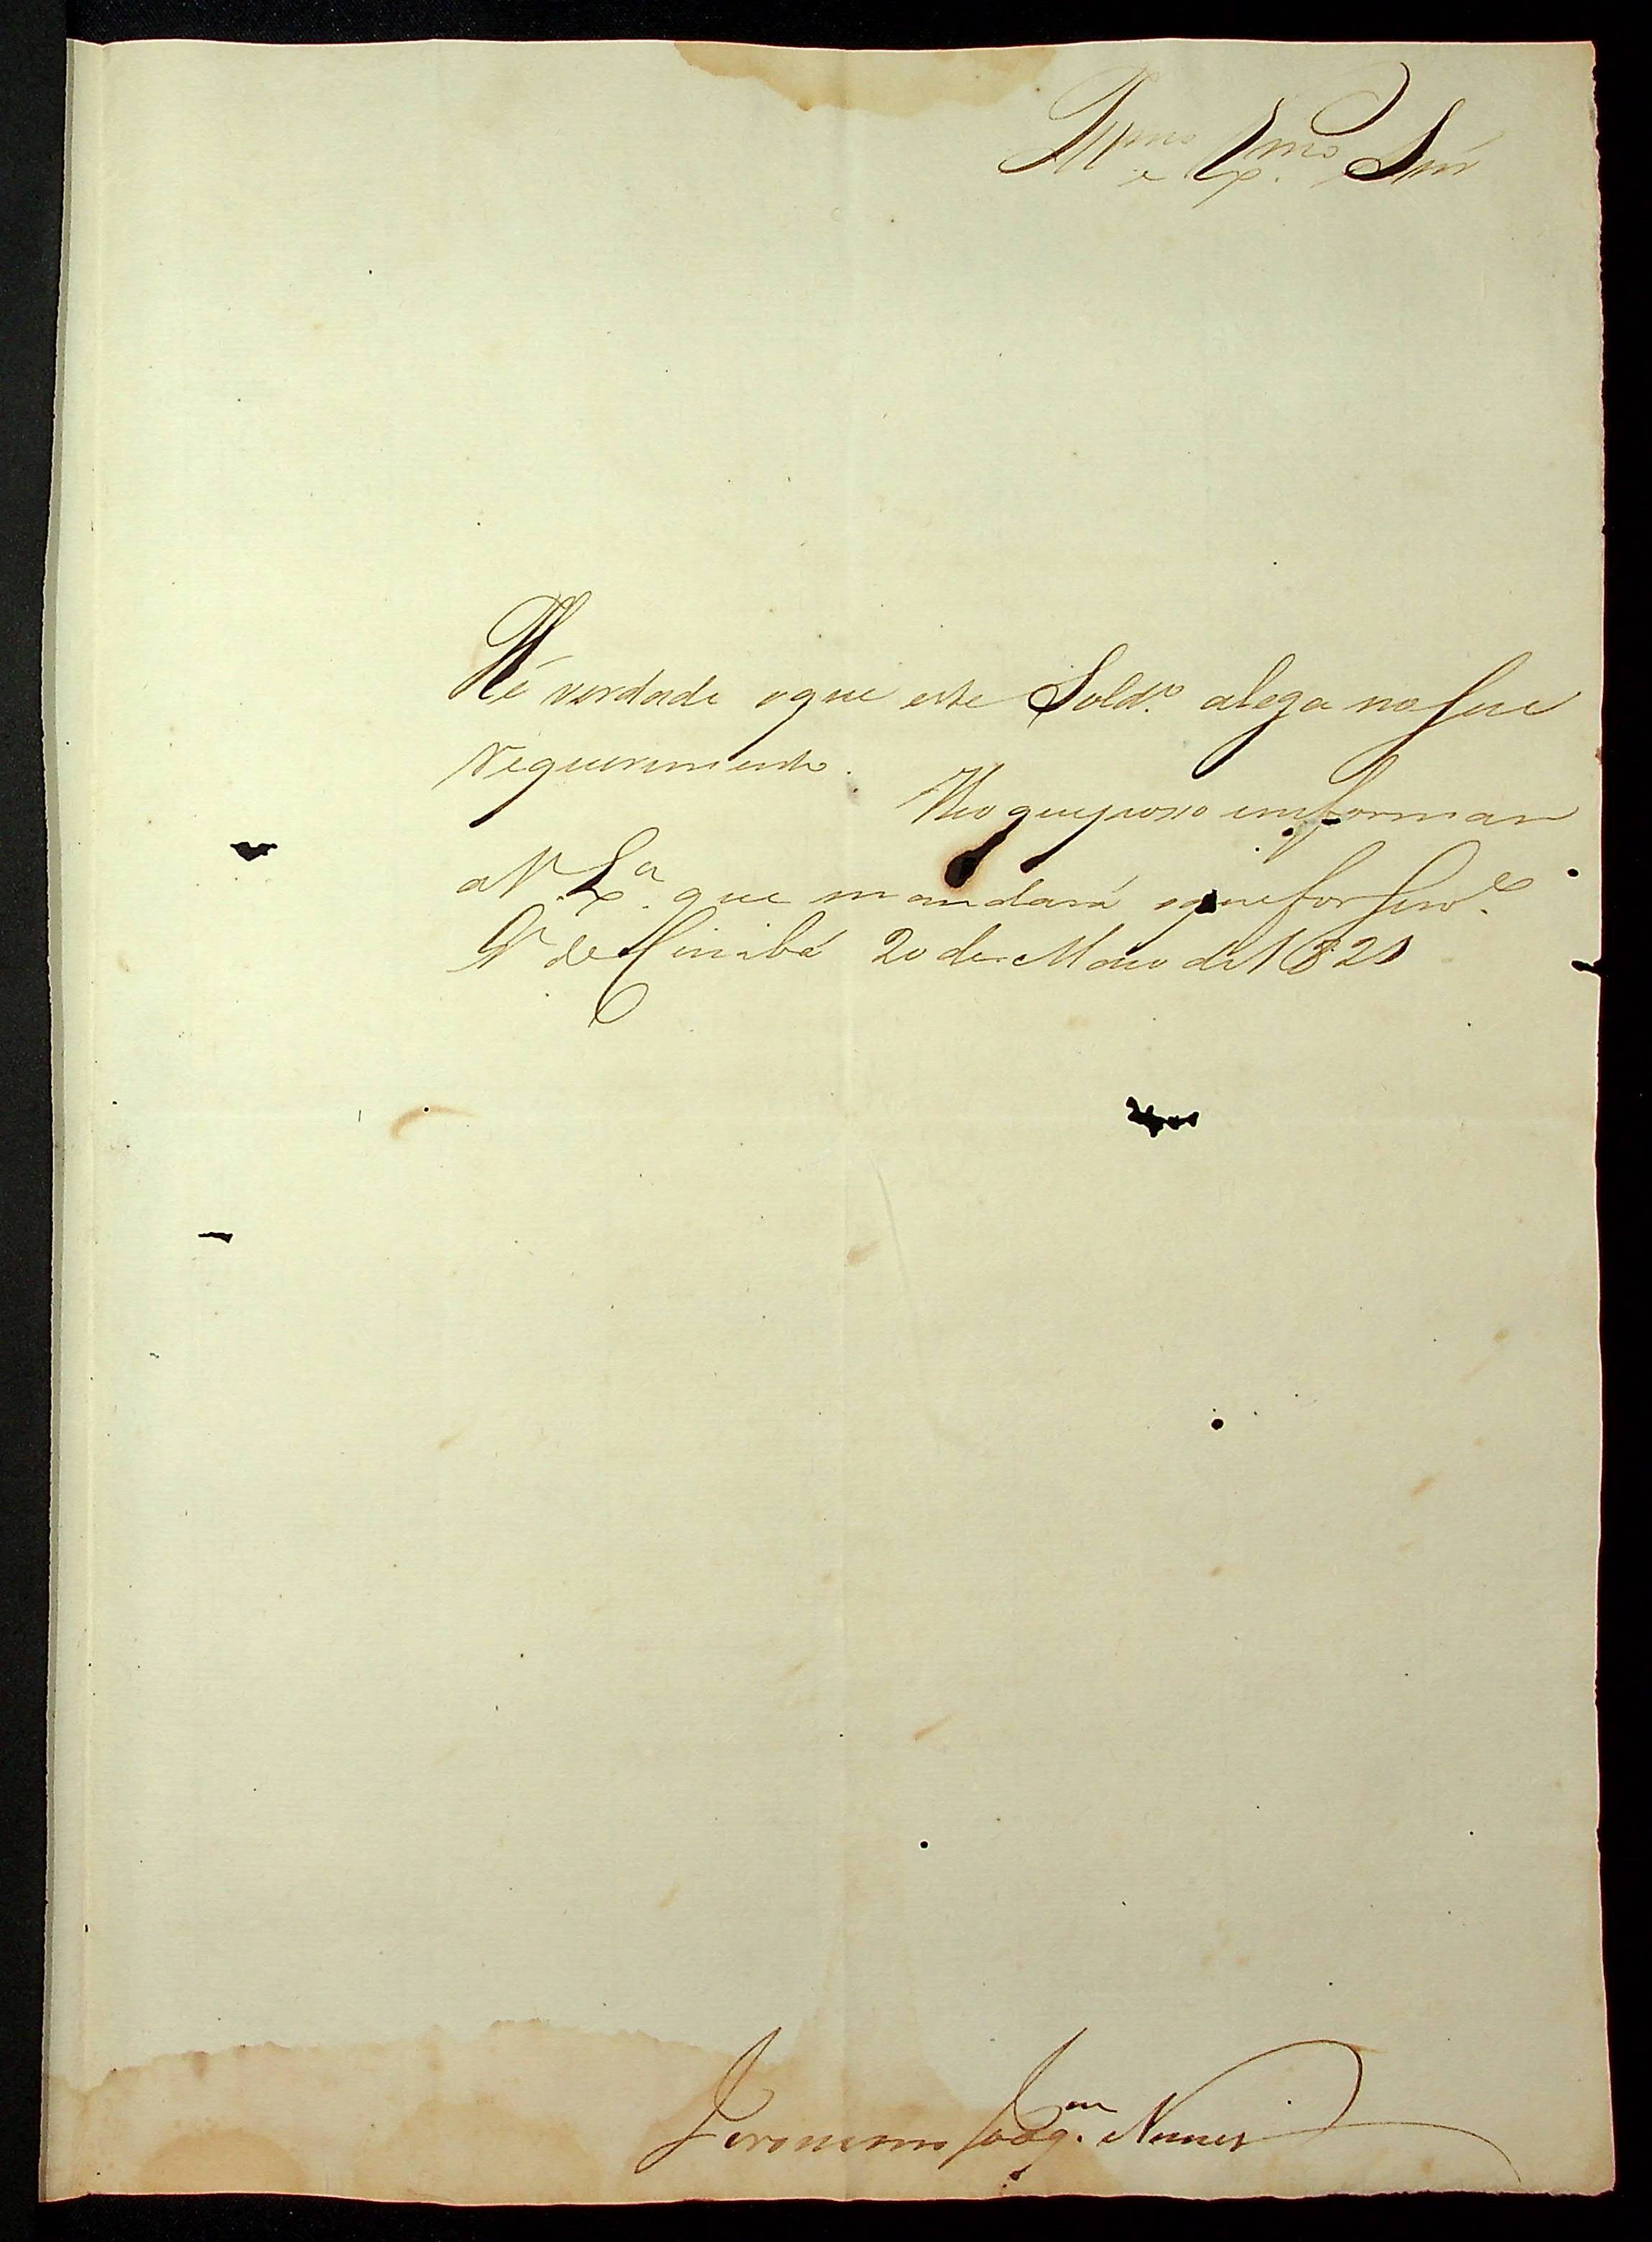 Illmo e Exmo Snr
Hé verdade oque este Soldo. alega no seu
requerimento.
Heoqueposso emformar
aV. Exa. que mandará oquefor Servo.
V de 20 de Maio de 1821
Jeronimo Joaqm. Nunes